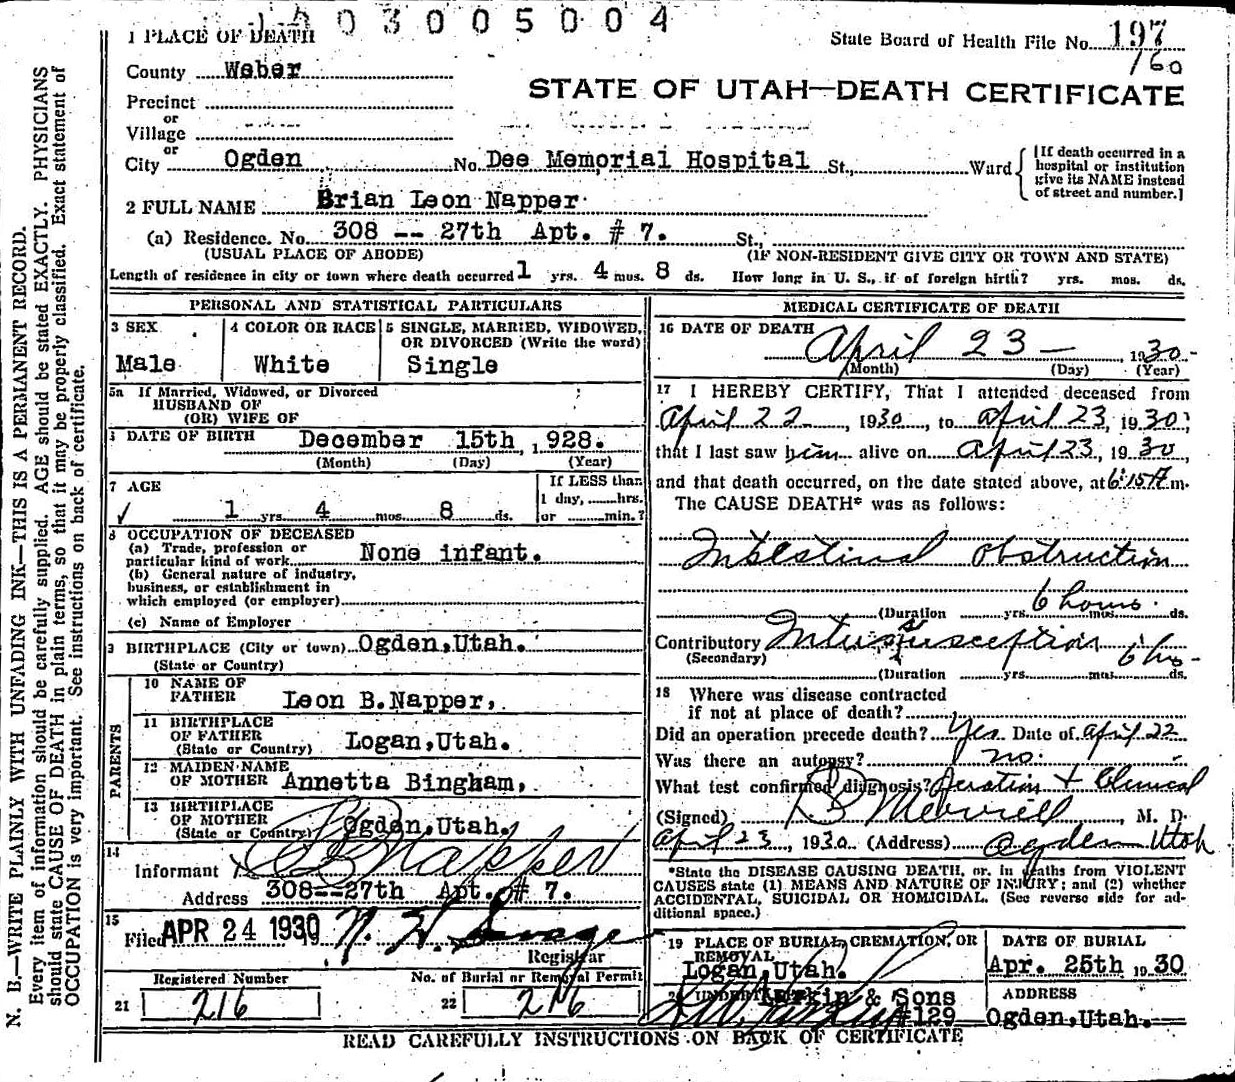 1 A 0 3 0 0 5 0 0 4
1 PLACE OF DEATH
State Board of Health File No. 197
160
County Weber
STATE OF UTAH—DEATH CERTIFICATE
Precinct
or
Village
or
City Ogden No. Dee Memorial Hospital St., Ward
[If death occurred in a hospital or institution give its NAME instead of street and number.]
2 FULL NAME Brian Leon Napper
(a) Residence. No. 308 -- 27th Apt. # 7. St.,
(USUAL PLACE OF ABODE) (IF NON-RESIDENT GIVE CITY OR TOWN AND STATE)
Length of residence in city or town where death occurred 1 yrs. 4 mos. 8 ds. How long in U. S., if of foreign birth? yrs. mos. ds.
PERSONAL AND STATISTICAL PARTICULARS
3 SEX
Male
4 COLOR OR RACE
White
5 SINGLE, MARRIED, WIDOWED,
OR DIVORCED (Write the word)
Single
5a If Married, Widowed, or Divorced
HUSBAND OF
(OR) WIFE OF
DATE OF BIRTH December 15th, 1928.
(Month) (Day) (Year)
7 AGE
1 yrs. 4 mos. 8 ds.
If LESS than
1 day, hrs.
or min.?
8 OCCUPATION OF DECEASED
(a) Trade, profession or
particular kind of work None infant.
(b) General nature of industry,
business, or establishment in
which employed (or employer)
(c) Name of Employer
9 BIRTHPLACE (City or town) Ogden,Utah.
(State or Country)
PARENTS
10 NAME OF
FATHER Leon B.Napper,
11 BIRTHPLACE
OF FATHER
(State or Country) Logan,Utah.
12 MAIDEN NAME
OF MOTHER Annetta Bingham,
13 BIRTHPLACE
OF MOTHER
(State or Country) Ogden,Utah.
14
Informant L B Napper
Address 308--27th Apt. # 7.
15
Filed APR 24 1930 N. H. Savage
Registrar
Registered Number No. of Burial or Removal Permit
21 216 22 216
MEDICAL CERTIFICATE OF DEATH
16 DATE OF DEATH
April 23 — , 1930 -
(Month) (Day) (Year)
17 I HEREBY CERTIFY, That I attended deceased from
April 22 , 1930, to April 23, 1930;
that I last saw him alive on April 23, 1930,
and that death occurred, on the date stated above, at 6:15 A m.
The CAUSE DEATH* was as follows:
Intestinal Obstruction
6 hours.
(Duration yrs. mos. ds.
Contributory Intussusception 6 hrs -
(Secondary)
(Duration yrs. mos. ds.
18 Where was disease contracted
if not at place of death?
Did an operation precede death? Yes Date of April 22
Was there an autopsy? no.
What test confirmed diagnosis? & Clinical
(Signed) Merrill, M. D.
April 23, 1930 (Address) Ogden Utah
*State the DISEASE CAUSING DEATH, or, in deaths from VIOLENT
CAUSES state (1) MEANS AND NATURE OF INJURY; and (2) whether
ACCIDENTAL, SUICIDAL OR HOMICIDAL. (See reverse side for ad-
ditional space.)
19 PLACE OF BURIAL, CREMATION, OR
REMOVAL
Logan,Utah.
DATE OF BURIAL
Apr. 25th 1930
20 UNDERTAKER Larkin & Sons
#129
ADDRESS
Ogden,Utah.
READ CAREFULLY INSTRUCTIONS ON BACK OF CERTIFICATE
N. B.—WRITE PLAINLY WITH UNFADING INK—THIS IS A PERMANENT RECORD.
Every item of information should be carefully supplied. AGE should be stated EXACTLY. PHYSICIANS
should state CAUSE OF DEATH in plain terms, so that it may be properly classified. Exact statement of
OCCUPATION is very important. See instructions on back of certificate.